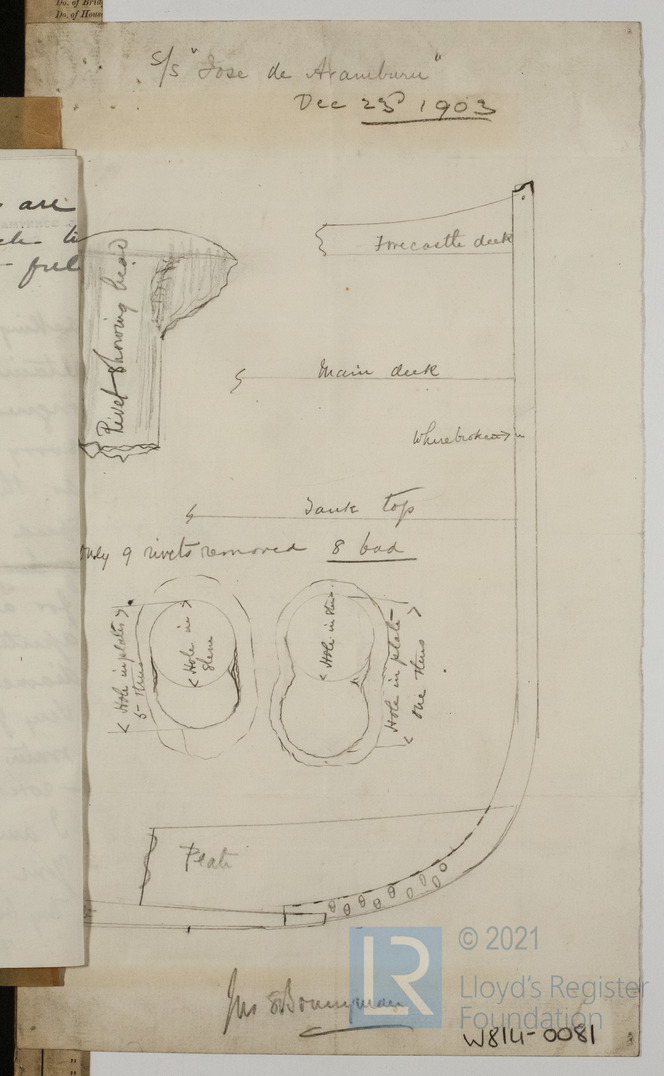 Do. of House
S/S "Jose de Aramburu"
Dec 23rd 1903
are
Forecastle deck
Rivet showing head
Main deck
Where broken
Tank top
Only 9 rivets removed 8 bad
Hole in plates
5 thus
Hole in Stem
Hole in Stem
Hole in plate
one thus
Plate
Jno S Bonnyman
LR
© 2021
Lloyd's Register
Foundation
W814-0081